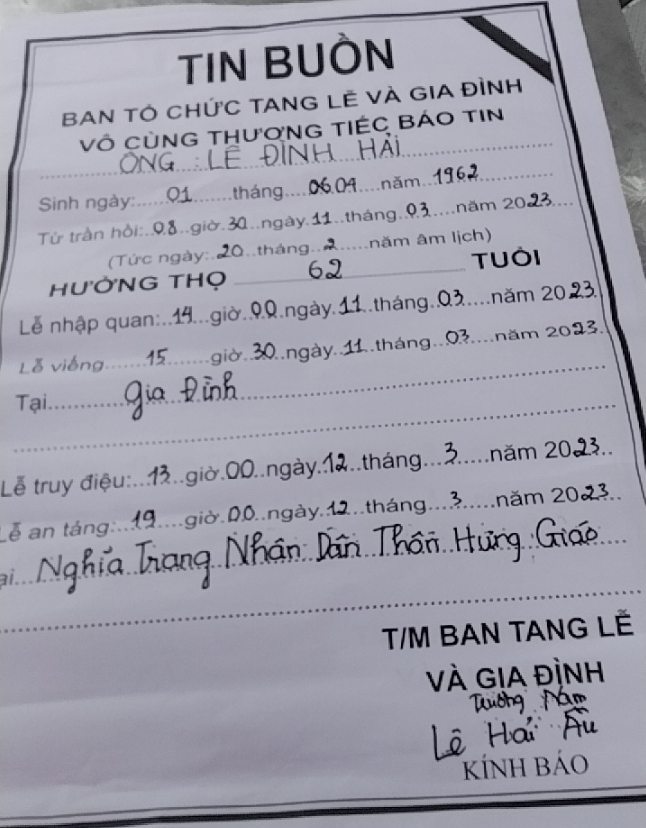 TIN BUỒN
BAN TỔ CHỨC TANG LỄ VÀ GIA ĐÌNH
VÔ CÙNG THƯƠNG TIẾC BÁO TIN
ÔNG : LÊ ĐÌNH HẢI
Sinh ngày:......01......tháng....06.09....năm...1962
Từ trần hồi:..08..giờ.30..ngày.11..tháng..03.....năm 2023....
(Tức ngày:..20..tháng..2......năm âm lịch)
HƯỞNG THỌ 62 TUỔI
Lễ nhập quan:..14...giờ.00.ngày.11..tháng..03....năm 2023.
Lễ viếng.......15.......giờ.30..ngày..11..tháng...03....năm 2023.
Tại............gia Đình
Lễ truy điệu:...13..giờ.00..ngày.12..tháng...3.....năm 2023..
Lễ an táng:...19....giờ.00..ngày.12...tháng...3.....năm 2023..
ại... Nghĩa Trang Nhân Dân Thôn Hưng Giáo
T/M BAN TANG LỄ
VÀ GIA ĐÌNH
Trưởng Nam
Lê Hải Âu
KÍNH BÁO